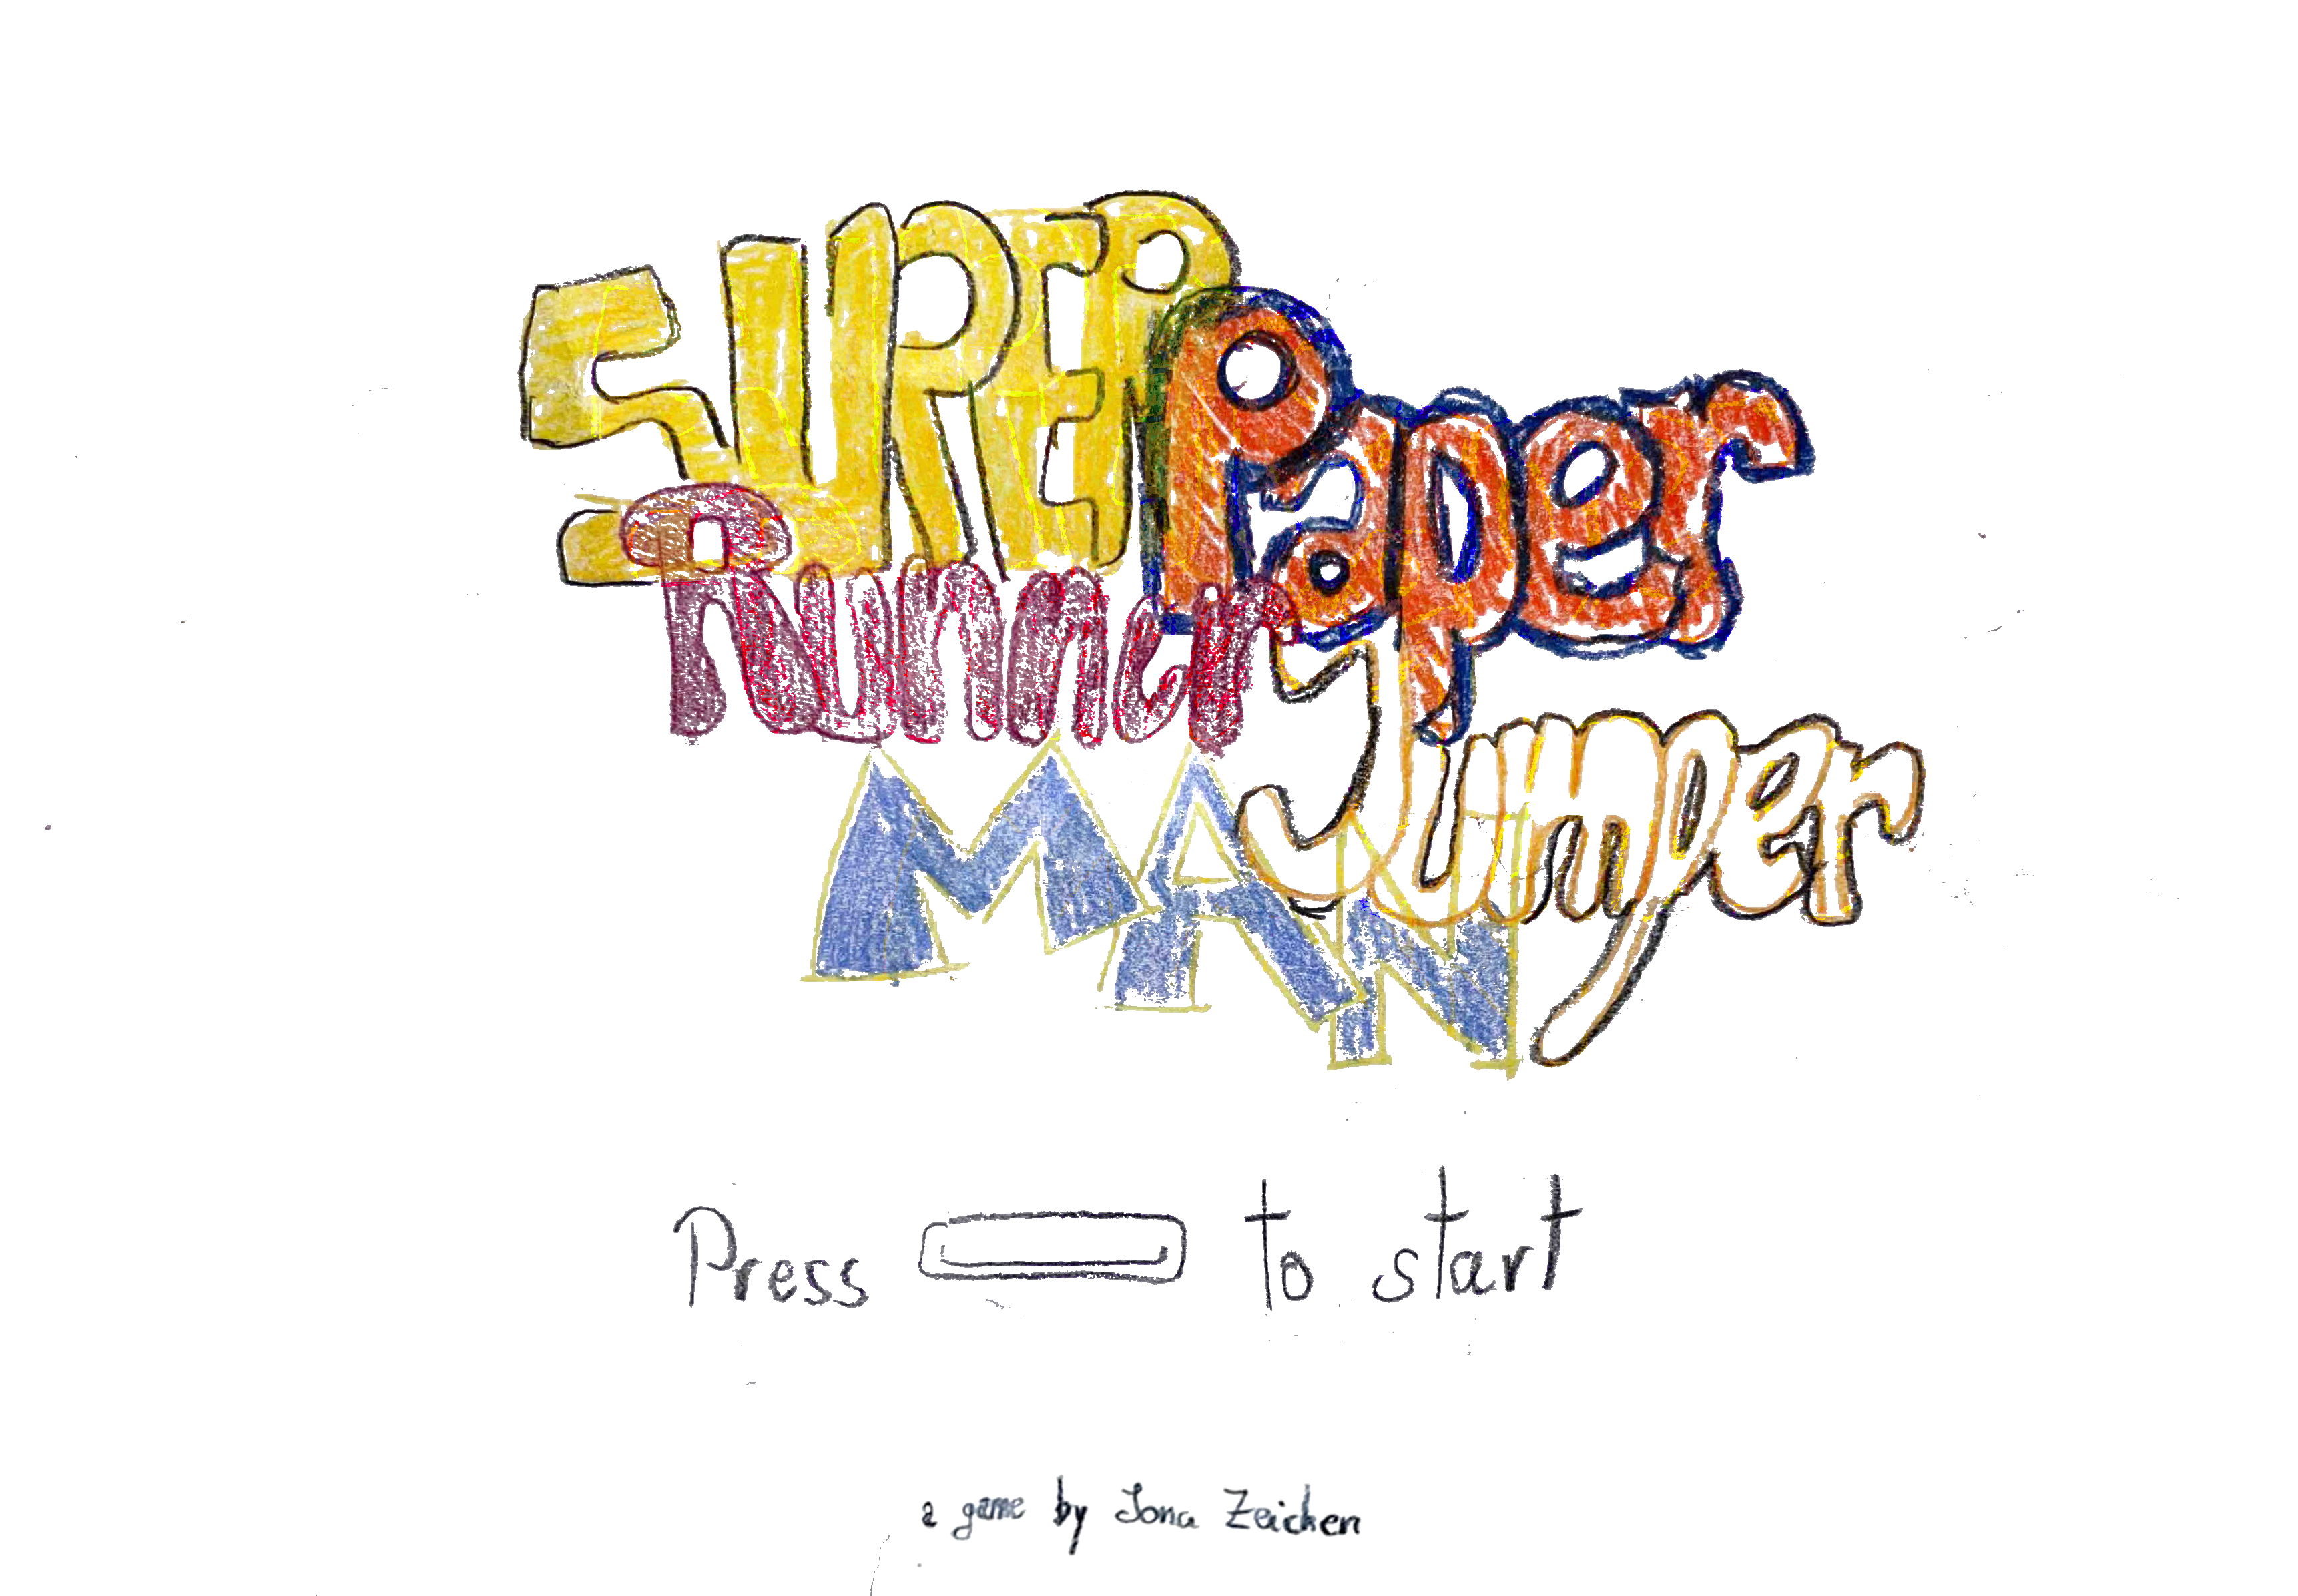 SUPER
Paper
Runner
Jumper
MAN
Press to start
a game by Jona Zeichen